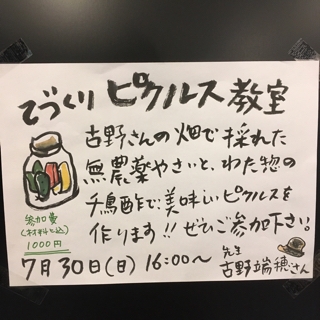 てづくりピクルス教室
古野さんの畑で採れた
無農薬やさいと、わた惣の
千鳥酢で美味しいピクルスを
作ります!!ぜひご参加下さい。
参加費
(材料込)
1000円
7月30日(日) 16:00〜
先生
古野端穂さん